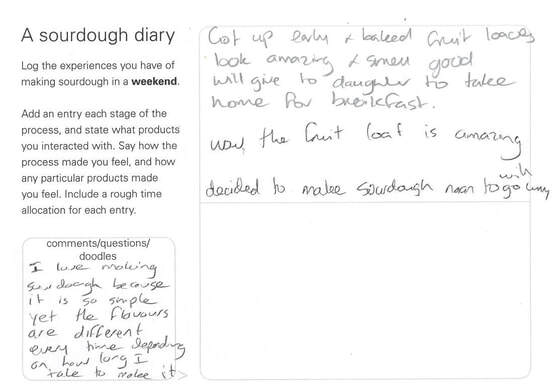 A sourdough diary
Log the experiences you have of
making sourdough in a weekend.
Add an entry each stage of the
process, and state what products
you interacted with. Say how the
process made you feel, and how
any particular products made
you feel. Include a rough time
allocation for each entry.
comments/questions/
doodles
I love making
sourdough because
it is so simple
yet the flavours
are different
every time depending
on how long I
take to make it
Got up early & baked fruit loaves
look amazing & smell good
will give to daughter to take
home for breakfast.
wow the fruit loaf is amazing
decided to make sourdough naan to go with